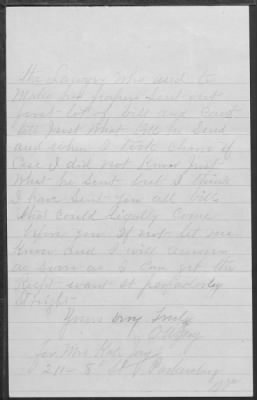 the Lawyer Who used to
Make her papers Sent out
first lot of bill and Cant
tell Just What All he Send
and when I took charge of
Case I did not Know Just
What he Sent but I think
I have Sent you all bills
that could Legally Come
from you If not let me
Know and I will answer
as soon as I Can get the
Right want it
Straight
Yours very Truly
for Mrs Kate
211 - 8" St Parkersburg